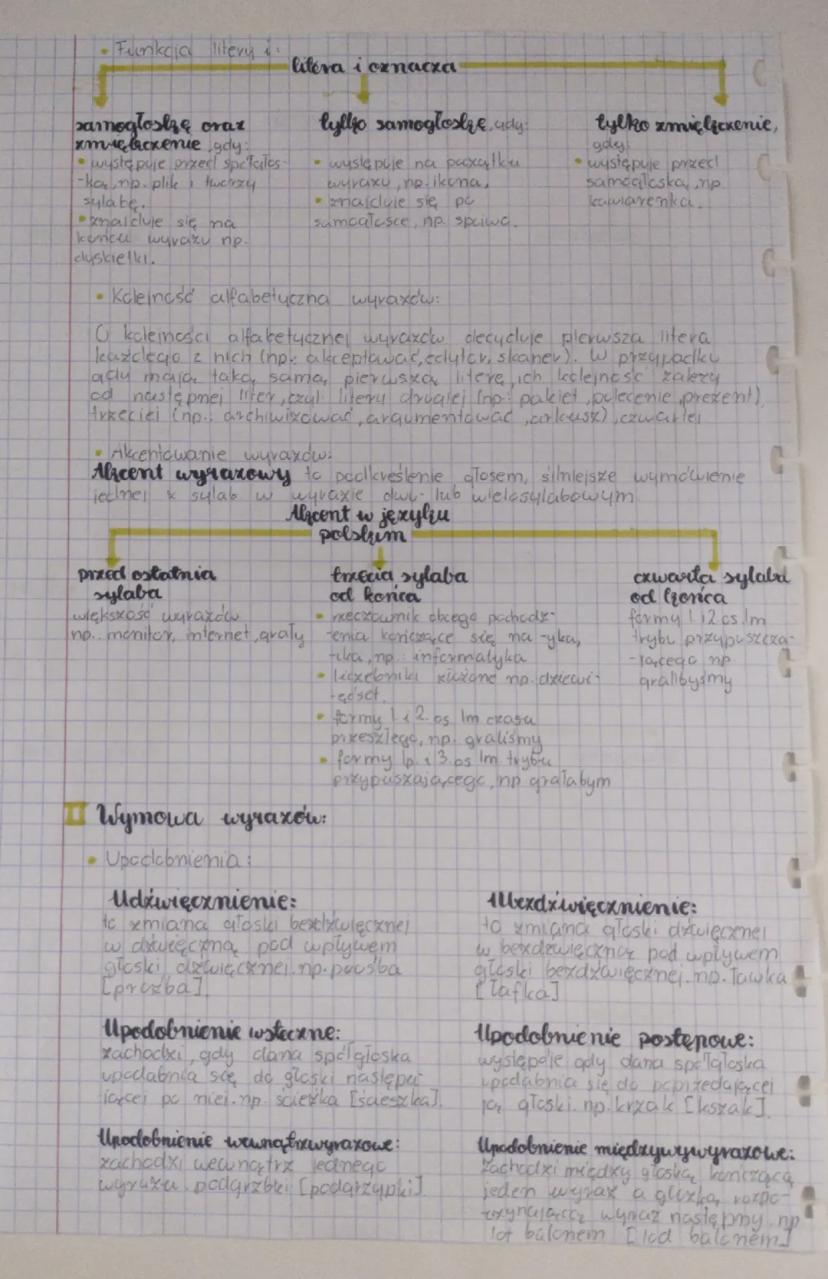 • Funkcja litery i:
litera i oznacza
samogłoskę oraz
zmiękczenie, gdy:
• występuje przed spółgłos-
-ką, np. plik i tworzy
sylabę.
• znajduje się na
końcu wyrazu np.
dyskietki.
tylko samogłoskę, gdy:
• występuje na początku
wyrazu, np. ikona,
• znajduje się po
samogłosce, np. spoiwo.
tylko zmiękczenie,
gdy:
• występuje przed
samogłoską, np.
kawiarenka.
• Kolejność alfabetyczna wyrazów:
O kolejności alfabetycznej wyrazów decyduje pierwsza litera
każdego z nich (np.: akceptować, edytor, skaner). W przypadku
gdy mają taką samą pierwszą literę, ich kolejność zależy
od następnej liter, czyl litery drugiej (np.: pakiet, polecenie, prezent)
trzeciej (np.: archiwizować, argumentować, arkusz), czwartej
• Akcentowanie wyrazów:
Akcent wyrazowy to podkreślenie głosem, silniejsze wymówienie
jednej z sylab w wyrazie dwu- lub wielosylabowym
Akcent w języku
polskim
przed ostatnia
sylaba
większość wyrazów
np.: monitor, internet, grały
trzecia sylaba
od końca
• rzeczownik obcego pochodz-
-enia kończące się na -yka,
-ika, np.: informatyka
• liczebniki złożone np. dziewi-
-ęćset.
• formy 1 i 2 os lm czasu
przeszłego, np. graliśmy
• formy lp i 3 os lm trybu
przypuszającego, np grałabym
czwarta sylaba
od końca
formy 1 i 2 os. lm
trybu przypuszcza-
-jącego np
gralibyśmy
II Wymowa wyrazów:
• Upodobnienia:
Udźwięcznienie:
to zmiana głoski bezdźwięcznej
w dźwięczną pod wpływem
głoski dźwięcznej. np. prośba
[proźba]
Ubezdźwięcznienie:
to zmiana głoski dźwięcznej
w bezdźwięczną pod wpływem
głoski bezdźwięcznej. np. ławka
[łafka]
Upodobnienie wsteczne:
zachodzi, gdy dana spółgłoska
upodabnia się do głoski następu-
jącej po niej. np. ścieżka [ścieszka].
Upodobnienie postępowe:
występuje gdy dana spółgłoska
upodabnia się do poprzedzającej
ją głoski. np. krzak [kszak].
Upodobnienie wewnątrzwyrazowe:
zachodzi wewnątrz jednego
wyrazu. podgrzbki [podgrzypki]
Upodobnienie międzywywyrazowe:
zachodzi między głoską kończącą
jeden wyraz a głozką rozpo-
-czynającą wyraz następny. np
lot balonem [lod balonem]